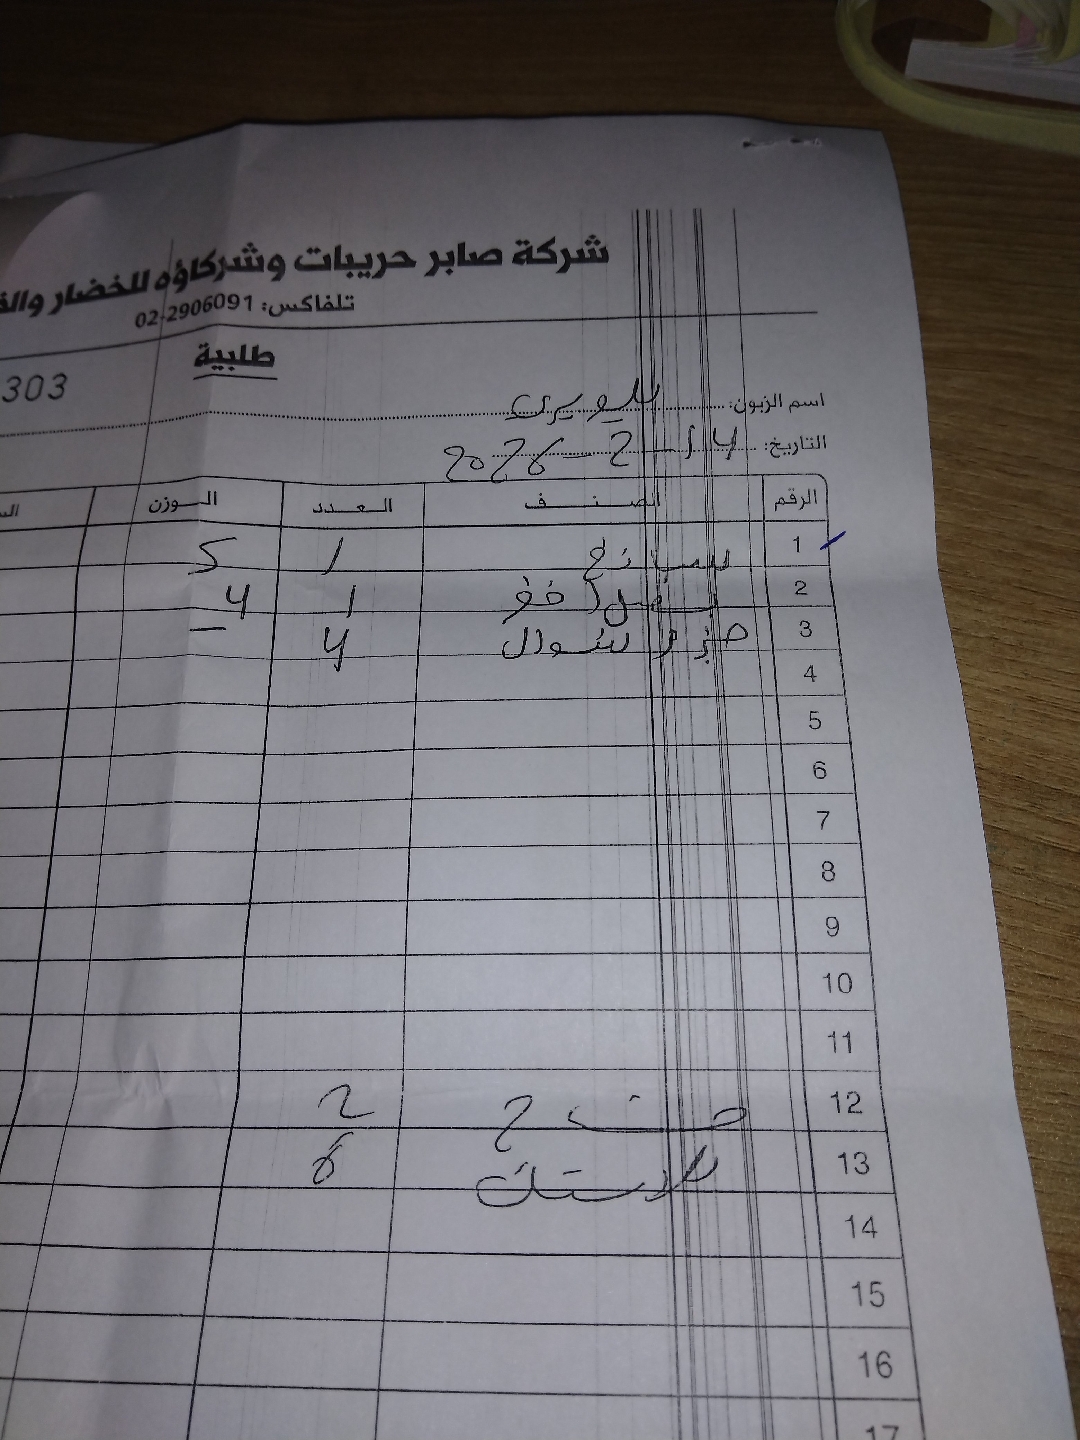 شركة صابر حريبات وشركاؤه للخضار
تلفاكس: 02-2906091
طلبية
303
اسم الزبون:
التاريخ: 14-2-2026
الرقم الصنف العدد الوزن
1 سبانخ 1 5
2 بصل اخضر 1 4
3 جزر شوال 4 -
4
5
6
7
8
9
10
11
12 2
13 بلاستك 6
14
15
16
17